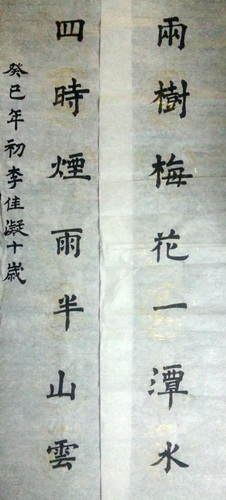 兩樹梅花一潭水
四時煙雨半山雲
癸巳年初李佳凝十歲